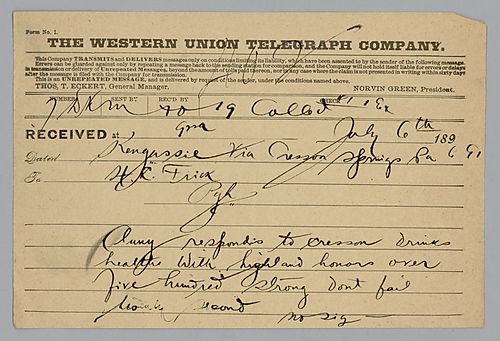 Form No. 1.
THE WESTERN UNION TELEGRAPH COMPANY.
This Company TRANSMITS and DELIVERS messages only on conditions limiting its liability, which have been assented to by the sender of the following message.
Errors can be guarded against only by repeating a message back to the sending station for comparison, and the Company will not hold itself liable for errors or delays
in transmission or delivery of Unrepeated Messages, beyond the amount of tolls paid thereon, nor in any case where the claim is not presented in writing within sixty days
after the message is filed with the Company for transmission.
This is an UNREPEATED MESSAGE, and is delivered by request of the sender, under the conditions named above.
THOS. T. ECKERT, General Manager. NORVIN GREEN, President.
NUMBER SENT BY REC'D BY CHECK
19 Collect
RECEIVED at July 6th 189
Dated Via Cresson Springs Pa 6
To H.C. Frick
Pgh
Cluny respondis to cresson drinks
healths with highland honors over
five hundred strong Dont fail
second
no sig